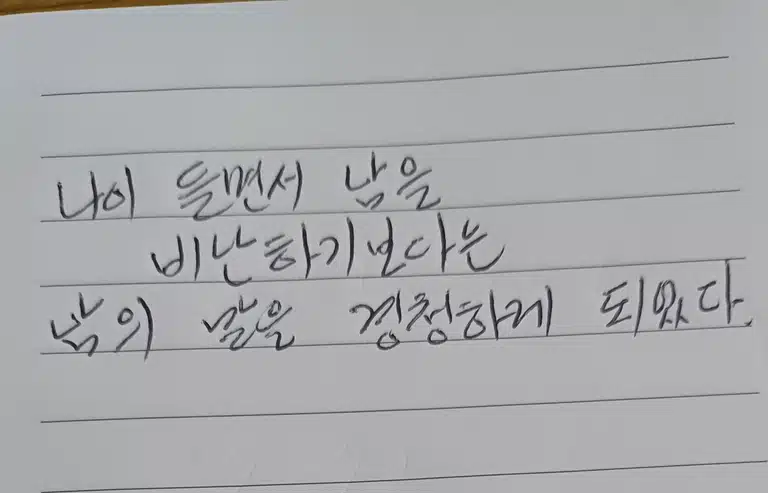 나이 들면서 남을
비난하기보다는
남의 말을 경청하게 되었다.